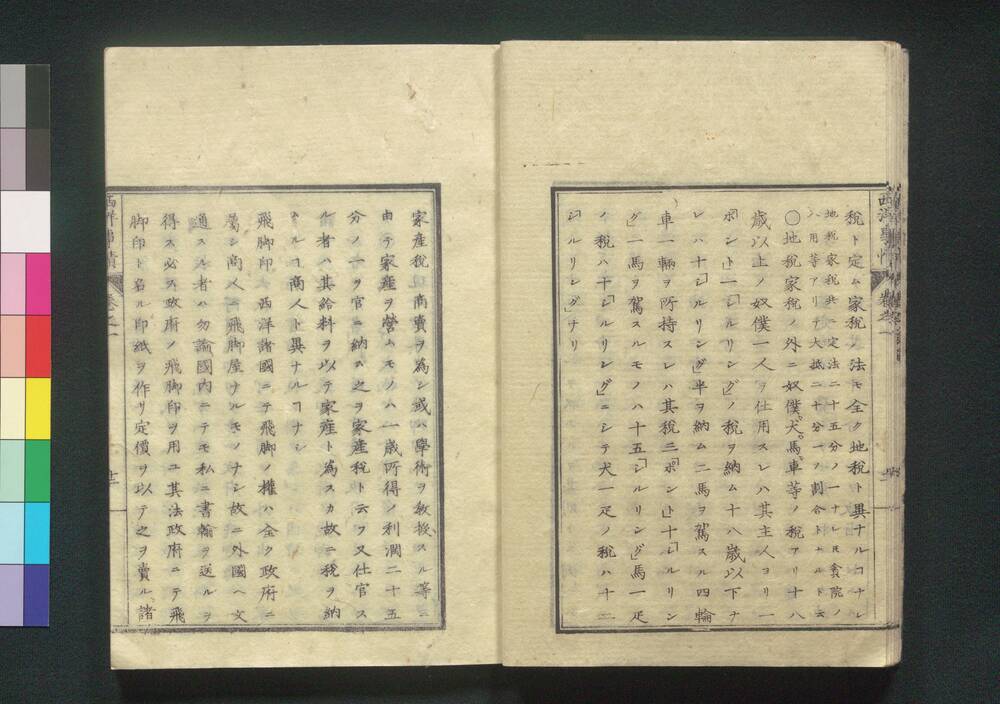 税ト定ム家税ノ法モ全ク地税ト異ナルヿナシ
地税家税共ニ定法二十五分ノ一ナレ𪜈貧院ノ
ハ用等アリテ大抵二十分一ノ割合トナルト云
〇地税家税ノ外ニ奴僕犬馬車等ノ税アリ十八
歳以上ノ奴僕一人ヲ仕用スレハ其主人ヨリ一
「ポント」一「シルリング」ノ税ヲ納ム十八歳以下ナ
レハ十「シルリング」半ヲ納ム二馬ヲ駕スル四輪
車一輛ヲ所持スレハ其税三「ポント」十「シルリン
グ」一馬ヲ駕スルモノハ十五「シルリング」馬一疋
ノ税ハ十「シルリング」ニシテ犬一疋ノ税ハ十二
「シルリング」ナリ
西洋事情 卷之一
家産税 商賣ヲ為シ或ハ學術ヲ敎授スル等ニ
由テ家産ヲ營ムモノハ一歳所得ノ利潤二十五
分ノ一ヲ官ニ納ム之ヲ家産税ト云フ又仕官ス
ル者ハ其給料ヲ以テ家産ト為スカ故ニ税ヲ納
ルヿ商人ト異ナルヿナシ
飛脚印 西洋諸國ニテ飛脚ノ權ハ全ク政府ニ
屬シ商人ニ飛脚屋ナルモノナシ故ニ外國ヘ文
通スル者ハ勿論國内ニテモ私ニ書翰ヲ送ルヲ
得ス必ス政府ノ飛脚印ヲ用ユ其法政府ニテ飛
脚印ト名ル印紙ヲ作リ定價ヲ以テ之ヲ賣ル諸
西洋事情 卷之一 廿二